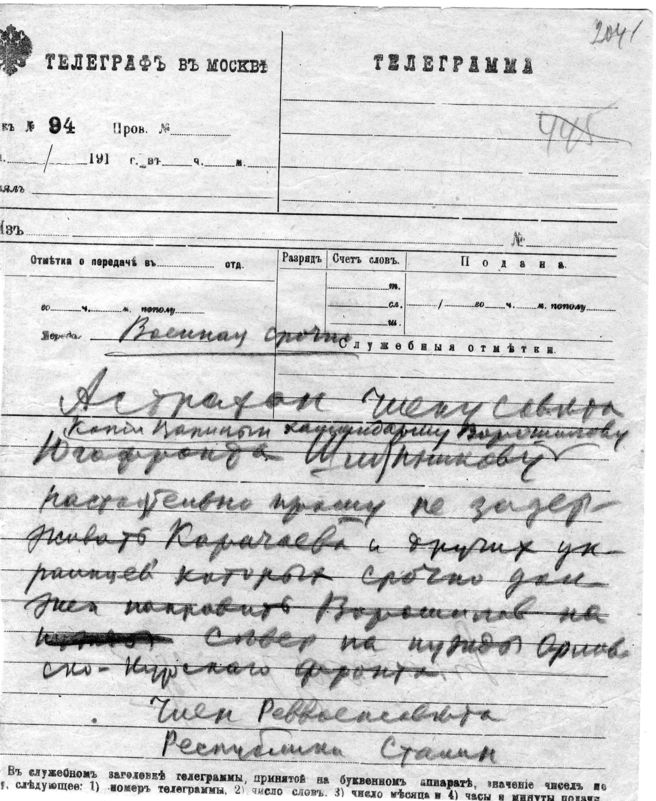 2041
ТЕЛЕГРАФЪ ВЪ МОСКВѢ
ТЕЛЕГРАММА
къ № 94 Пров. №
445
/ 191 г. въ ч. м.
ялъ
Изъ
№
Отмѣтка о передачѣ въ отд.
Разрядъ
Счетъ словъ.
Подана.
т.
во ч. м. пополу
сл.
/ во ч. м. пополу
ш.
Передa. Военная срочно
Служебныя отмѣтки.
Астрахан члену совѣта
Копии Царицын Ворошилову
Югофронта
настоятельно прошу не задер-
живать Карачаева и других ук-
раинцев которых срочно дол-
жен направить Ворошилов на
север на нужды Орлов
ско-Курскаго фронта
Член Реввоенсовета
Республики Сталин
Въ служебномъ заголовкѣ телеграммы, принятой на буквенномъ аппаратѣ, значеніе чиселъ по
слѣдующее: 1) номеръ телеграммы, 2) число словъ. 3) число мѣсяца и 4) часы и минуты подачи